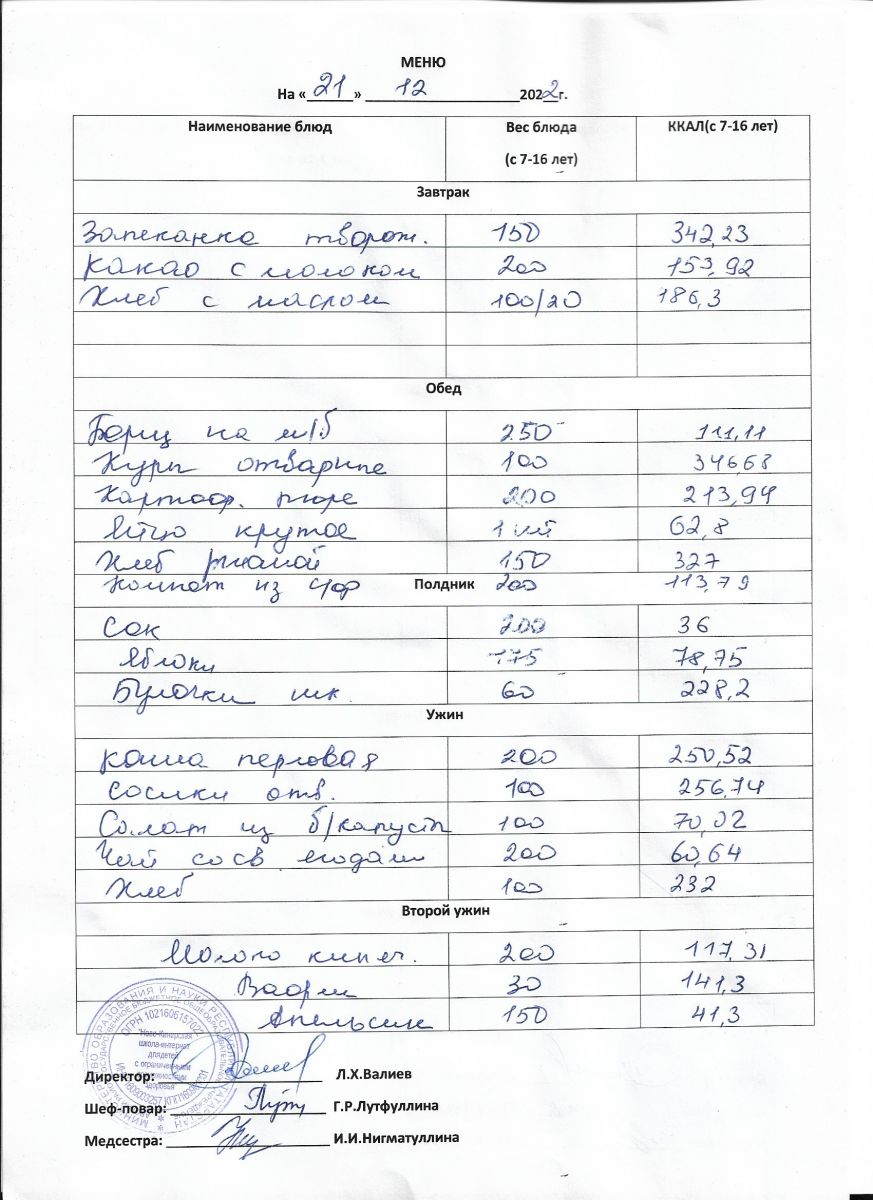 МЕНЮ
На « 21 » 12 2022 г.
Наименование блюд Вес блюда (с 7-16 лет) ККАЛ(с 7-16 лет)
Завтрак
Запеканка творож. 150 342,23
Какао с молоком 200 153,92
Хлеб с маслом 100/20 186,3
Обед
Борщ на м/б 250 111,11
Куры отварные 100 346,68
Картоф. пюре 200 213,94
Яйцо крутое 1 шт 62,8
Хлеб ржаной 150 327
Компот из с/ф 200 113,79
Полдник
Сок 200 36
Яблоки 175 78,75
Булочки шк. 60 228,2
Ужин
Каша перловая 200 250,52
Сосиски отв. 100 256,74
Салат из б/капусты 100 70,02
Чай со св ягодами 200 60,64
Хлеб 100 232
Второй ужин
Молоко кипяч. 200 117,31
Вафли 30 141,3
Апельсин 150 41,3
ОГРН 1021606157022
Ново-Кинерская
школа-интернат
для детей
с ограниченными
возможностями
здоровья
Директор: Л.Х.Валиев
Шеф-повар: Г.Р.Лутфуллина
Медсестра: И.И.Нигматуллина